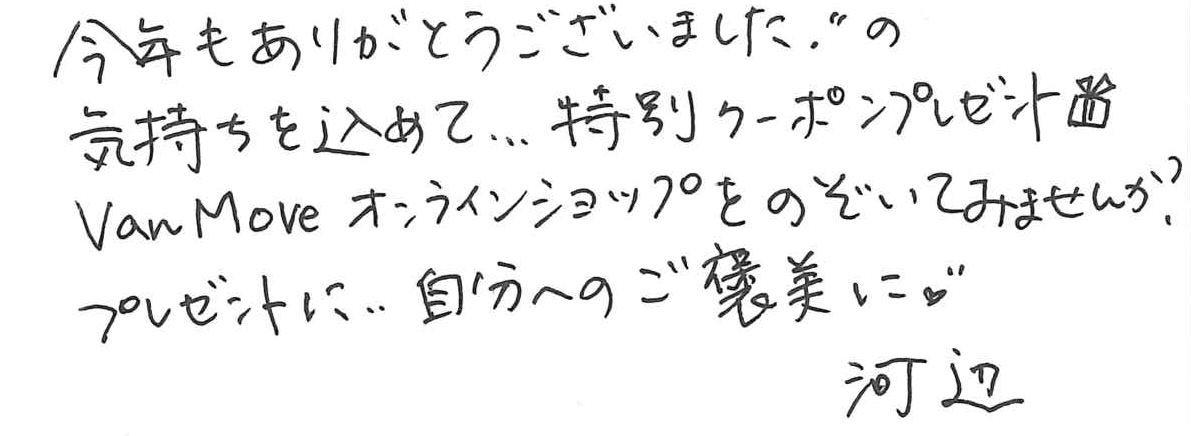 今年もありがとうございました."の
気持ちを込めて...特別クーポンプレゼント🎁
Van Move オンラインショップをのぞいてみませんか?
プレゼントに..自分へのご褒美に♥"
河辺